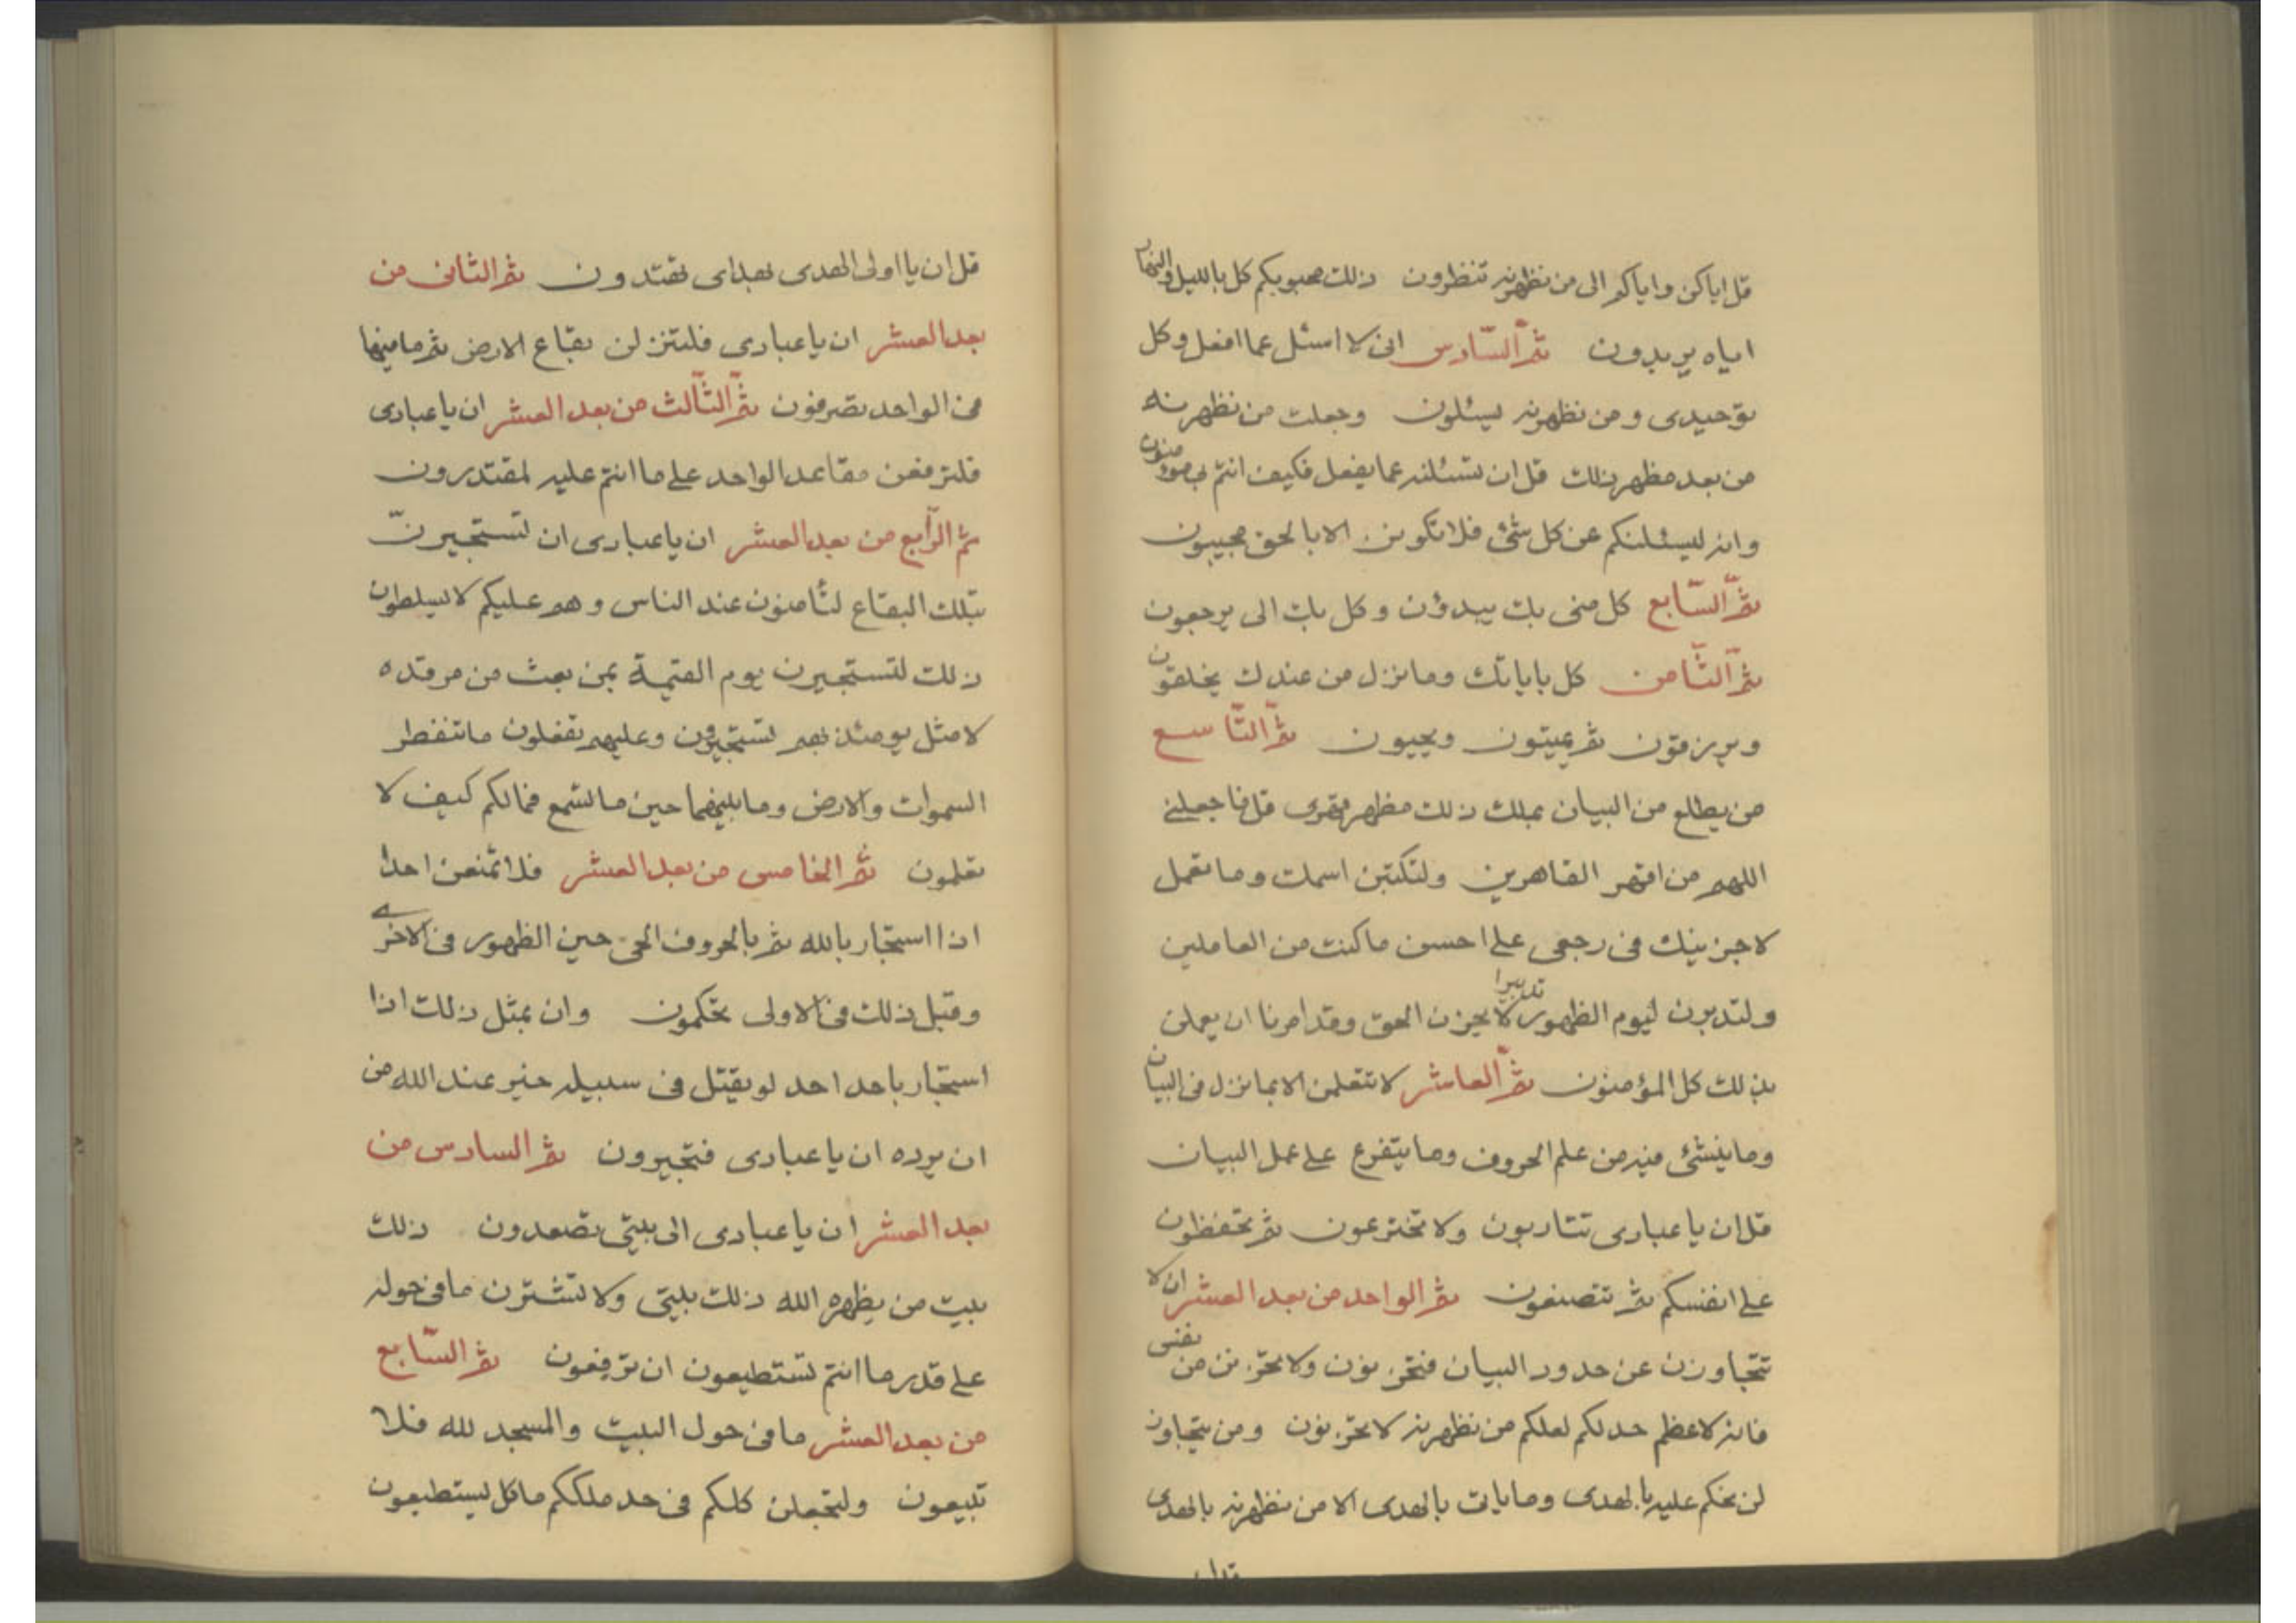 قل اياكن واياكم الى من نظهرنه تنظرون ذلك محبوبكم كل بالليل والنهار
اياه يريدون ثم السادس انى لا اسئل عما افعل وكل
توحيدى و من نظهرنه ليسئلون وجعلت من نظهرنه
من بعد مظهر ذلك قل ان تسئلنه عما يفعل فكيف انتم به مؤمنون
وانه ليسئلنكم عن كل شئ فلا تكونن الا بالحق مجيبون
ثم السابع كل منى بك يبدؤن وكل بك الى يرجعون
ثم الثامن كل باياتك وما نزل من عندك يخلقون
ويرزقون ثم يميتون ويحيون ثم التاسع
من يطلع من البيان بملك ذلك مظهر قهرى قل فاجعلنى
اللهم من اقهر القاهرين ولتكتبن اسمك وما تعمل
لاجزينك فى رجعى على احسن ما كنت من العاملين
ولتدبرن ليوم الظهور تدبيرا لا يحزن الحق وقد امرنا ان يعملن
بذلك كل المؤمنون ثم العاشر لا تتعلمن الا بما نزل فى البيان
وما ينشئ فيه من علم الحروف وما يتفرع على عمل البيان
قل ان يا عبادى تتادبون ولا تخترعون ثم تحفظون
على انفسكم ثم تنصفون ثم الواحد من بعد العشر ان لا
تتجاوزن عن حدود البيان فتحزنون ولا تحزنن من نفس
فانه لاعظم حد لكم لعلكم من نظهرنه لا تحزنون ومن يتجاوز
لن يحكم عليه بالهدى وما ياتى بالهدى الا من نظهرنه بالهدى
قل ان يا اولى الهدى بهداى تقتدون ثم الثانى من
بعد العشر ان يا عبادى فلتنزلن بقاع الارض ثم ما فيها
فى الواحد تصرفون ثم الثالث من بعد العشر ان يا عبادى
فلترفعن مقاعد الواحد على ما انتم عليه لمقتدرون
ثم الرابع من بعد العشر ان يا عبادى ان لتستجيرن
بتلك البقاع لتأمنون عند الناس وهم عليكم لا ليسلطون
ذلك لتستجيرن يوم القيمة بمن بعث من مرقده
لا مثل يومئذ بهم تستجيرون وعليهم تفعلون ما تنفطر
السموات والارض وما بينهما حين ما تسمع فما لكم كيف لا
تعلمون ثم الخامس من بعد العشر فلا تمنعن احدا
اذا استجار بالله ثم بالحروف الحى حين الظهور فى الاخرى
وقبل ذلك فى الاولى تحكمون وان بمثل ذلك اذا
استجار باحد احد لو يقتل فى سبيله خير عند الله من
ان يرده ان يا عبادى فتجيرون ثم السادس من
بعد العشر ان يا عبادى الى بيتى تصعدون ذلك
بيت من يظهره الله ذلك بيتى ولا تشترن ما فى حوله
على قدر ما انتم تستطيعون ان ترفعون ثم السابع
من بعد العشر ما فى حول البيت والمسجد لله فلا
تبيعون ولتجعلن كلكم فى حد ملككم ما كل ليستطيعون